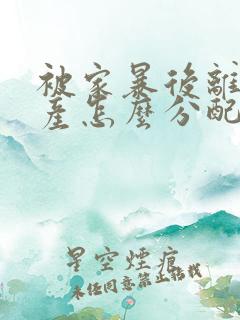 被家暴後離
產怎麼分配
星空煙痕
未經同意禁止轉載